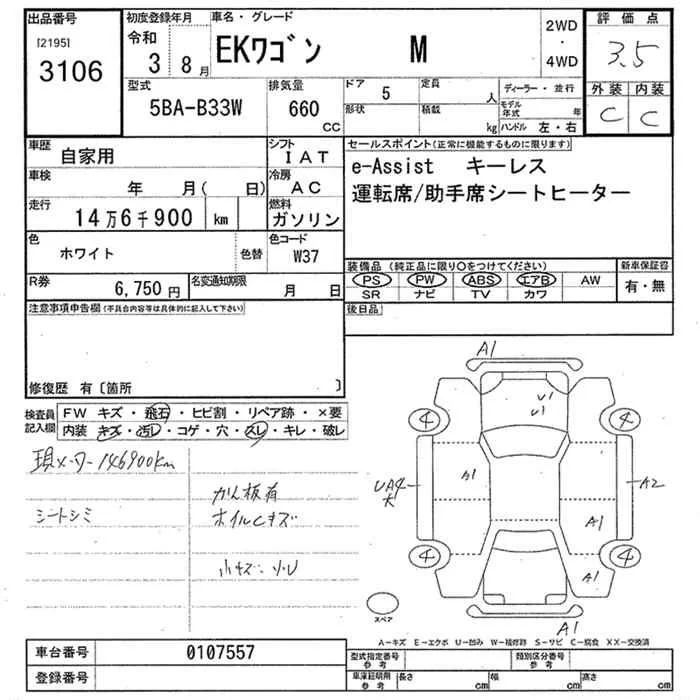 出品番号
[2195]
3106
初度登録年月
令和
3年 8月
車名・グレード
EKワゴン M
2WD
・
4WD
評価点
3.5
型式
5BA-B33W
排気量
660
CC
ドア
5
定員
人
形状
積載
kg
ディーラー・並行
モデル年式 年
ハンドル 左・右
外装 内装
C C
車歴
自家用
シフト
IAT
車検
年 月( 日)
冷房
AC
走行
14万6千900 km
燃料
ガソリン
色
ホワイト
色替
色コード
W37
R券
6,750円
名変通知期限
月 日
セールスポイント(正常に機能するものに限ります)
e-Assist キーレス
運転席/助手席シートヒーター
装備品(純正品に限り○をつけてください)
PS PW ABS エアB AW
SR ナビ TV カワ
新車保証書
有・無
後日品
注意事項申告欄(不具合内容等は具体的に記入して下さい)
修復歴 有〔箇所 〕
検査員記入欄
FW キズ・飛石・ヒビ割・リペア跡・×要
内装 キズ・汚レ・コゲ・穴・スレ・キレ・破レ
現メーター146900km
シートシミ
かん板有
ホイルCキズ
小キズ・小U
A1
U1
U1
4
4
A1
UA4
大
A2
A1
4
4
A1
A1
スペア
A-キズ E-エクボ U-凹み W-補修跡 S-サビ C-腐食 XX-交換済
車台番号
0107557
登録番号
型式指定番号
参考
類別区分番号
参考
車庫証明用
参考
長さ cm
幅 cm
高さ cm